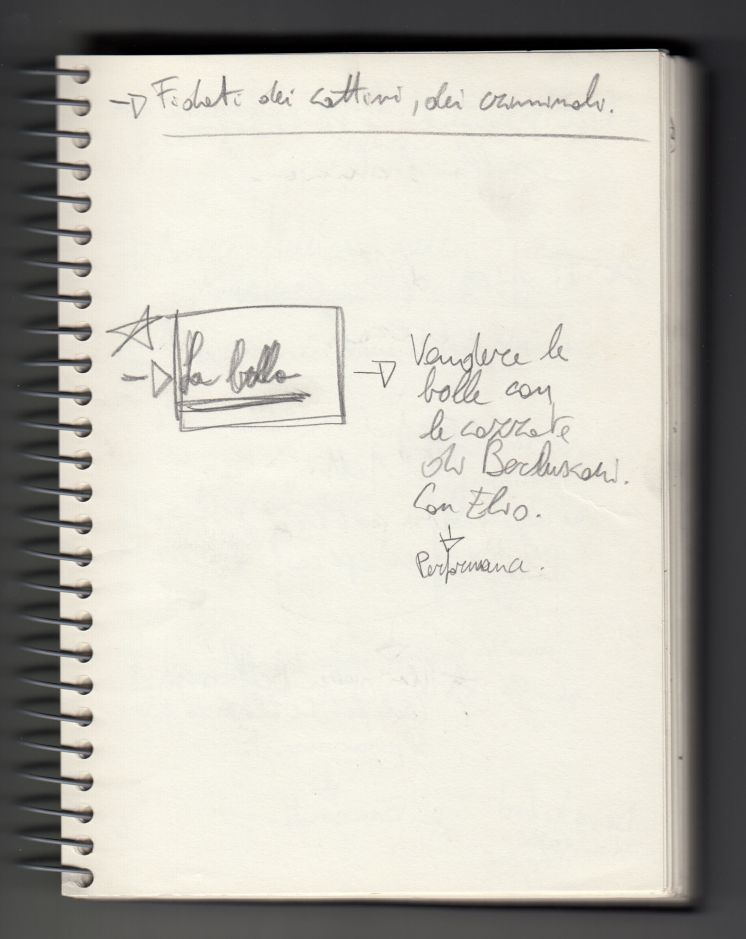 → Fidati dei cattivi, dei criminali.
☆
→ La bolla → Vendere le
bolle con
le cazzate
di Berlusconi.
Con Elio.
↓
Performance.